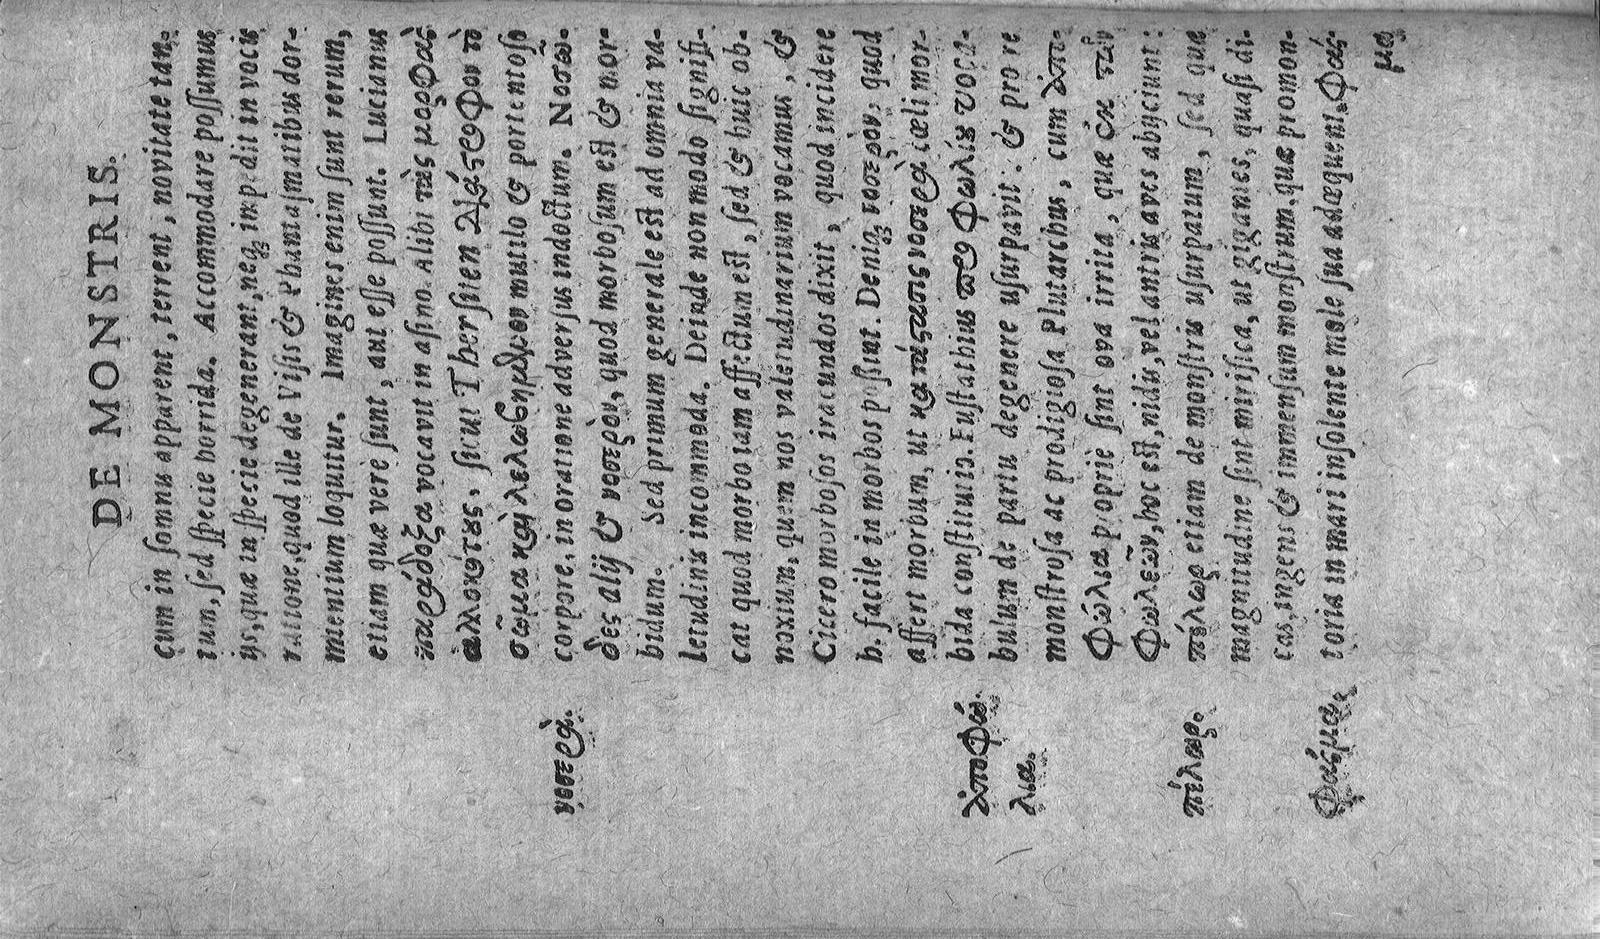 DE MONSTRIS.
cum in somnis apparent, terrent, novitate tan-
tum, sed specie horrida. Accommodare possumus
ijs, quæ in specie degenerant, neq; impedit in vocis
ratione, quod ille de Visis & Phantasmatibus dor-
mientium loquitur. Imagines enim sunt rerum,
etiam quæ verè sunt, aut esse possunt. Lucianus
παράδοξα vocavit in asino. Alibi τὰς μορφὰς
ἀλλοκότους. sicut Thersiten διάστροφον τὸ
σῶμα καὶ λελωβημένον mutilo & portentoso
corpore, in oratione adversus indoctum. Νοσώ-
νοσερὰ.
δες alij & νοσερὸν, quod morbosum est & mor-
bidum. Sed primum generale est ad omnia va-
letudinis incommoda. Deinde non modo signifi-
cat quod morbo iam affectum est, sed & huic ob-
noxium, quem nos valetudinarium vocamus, &
Cicero morbosos iracundos dixit, quod incidere
h. facile in morbos possint. Deniq; νοσερὸν, quod
affert morbum, ut κατάστασις νοσερὰ cæli mor-
bida constitutio. Eustathius περὶ φωλίου voca-
ἀποφώ-
bulum de partu degenere usurpavit: & pro re
λια.
monstrosa ac prodigiosa Plutarchus, cum ἀπο-
φώλια propriè sint ova irrita, quæ ἐκ τῶν
φωλεῶν, hoc est, nidis, vel antris aves abijciunt:
πέλωρ etiam de monstris usurpatum, sed quæ
πέλωρ.
magnitudine sint mirifica, ut gigantes, quasi di-
cas, ingens & immensum monstrum, quæ promon-
toria in mari insolente mole sua adæquent. Φάσ-
φάσμα.
μα